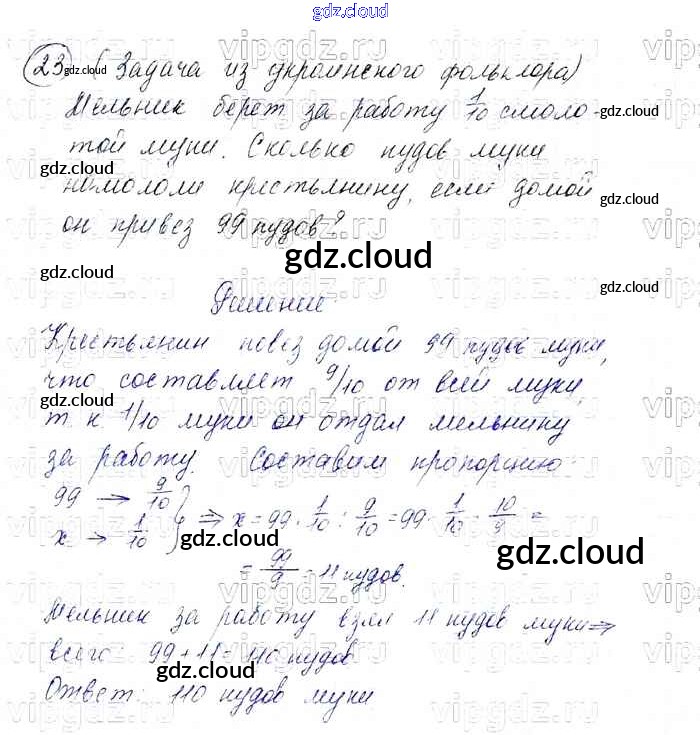 gdz.cloud
23 (Задача из украинского фольклора)
Мельник берет за работу 1/10 смоло-
той муки. Сколько пудов муки
намололи крестьянину, если домой
он привез 99 пудов?
gdz.cloud
Решение
Крестьянин повез домой 99 пудов муки,
что составляет 9/10 от всей муки,
т к 1/10 муки он отдал мельнику
за работу. Составим пропорцию
99 → 9/10
x → 1/10 } ⇒ x = 99 · 1/10 : 9/10 = 99 · 1/10 · 10/9 =
= 99/9 = 11 пудов.
gdz.cloud
Мельник за работу взял 11 пудов муки ⇒
всего 99 + 11 = 110 пудов
Ответ: 110 пудов муки